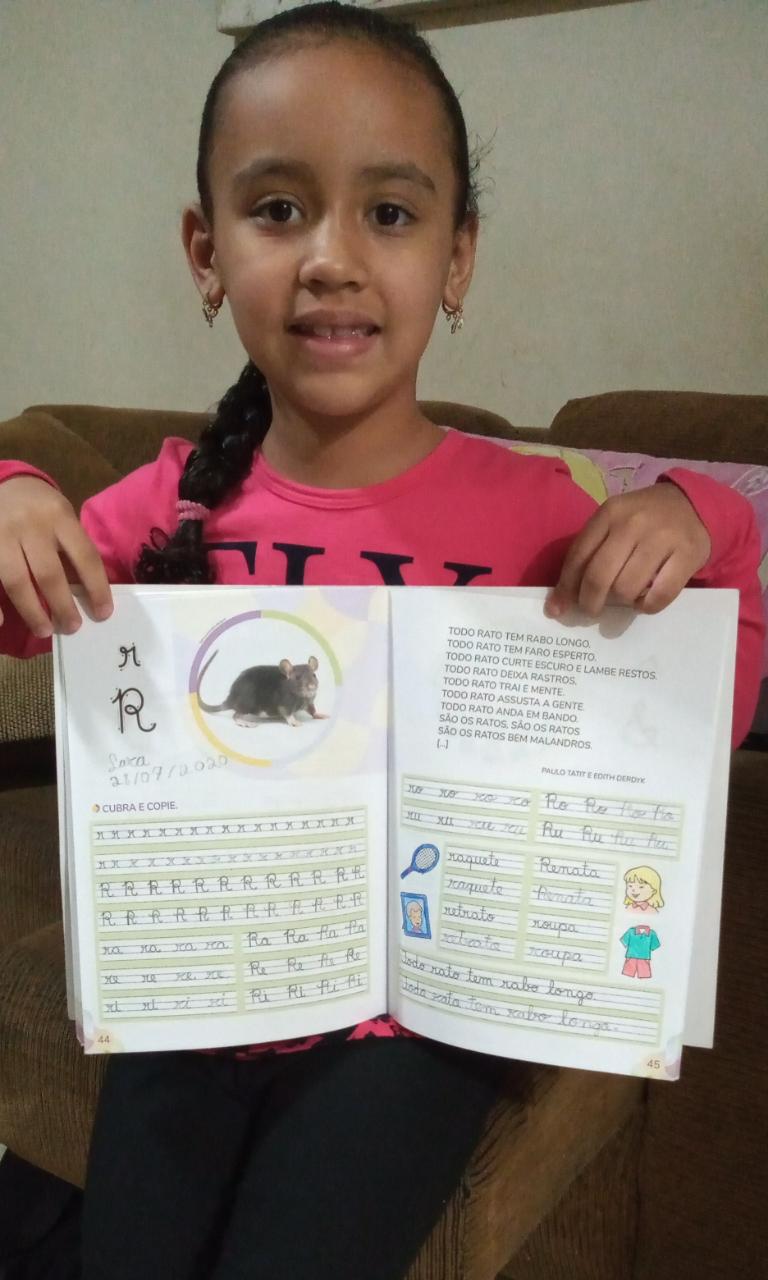 ELY
r
R
Sara
28/07/2020
CUBRA E COPIE.
r r r r r r r r r r r r r r r
rr r r r r r r r r r r r r r
R R R R R R R R R R R R
R R R R R R R R R R R R
ra ra ra ra
Ra Ra Ra Ra
re re re re
Re Re Re Re
ri ri ri ri
Ri Ri Ri Ri
44
TODO RATO TEM RABO LONGO.
TODO RATO TEM FARO ESPERTO.
TODO RATO CURTE ESCURO E LAMBE RESTOS.
TODO RATO DEIXA RASTROS.
TODO RATO TRAI E MENTE.
TODO RATO ASSUSTA A GENTE.
TODO RATO ANDA EM BANDO.
SÃO OS RATOS, SÃO OS RATOS
SÃO OS RATOS BEM MALANDROS.
[...]
PAULO TATIT E EDITH DERDYK
ro ro ro ro
Ro Ro Ro Ro
ru ru ru ru
Ru Ru Ru Ru
raquete
Renata
raquete
Renata
retrato
roupa
retrato
roupa
todo rato tem rabo longo.
todo rato tem rabo longo.
45